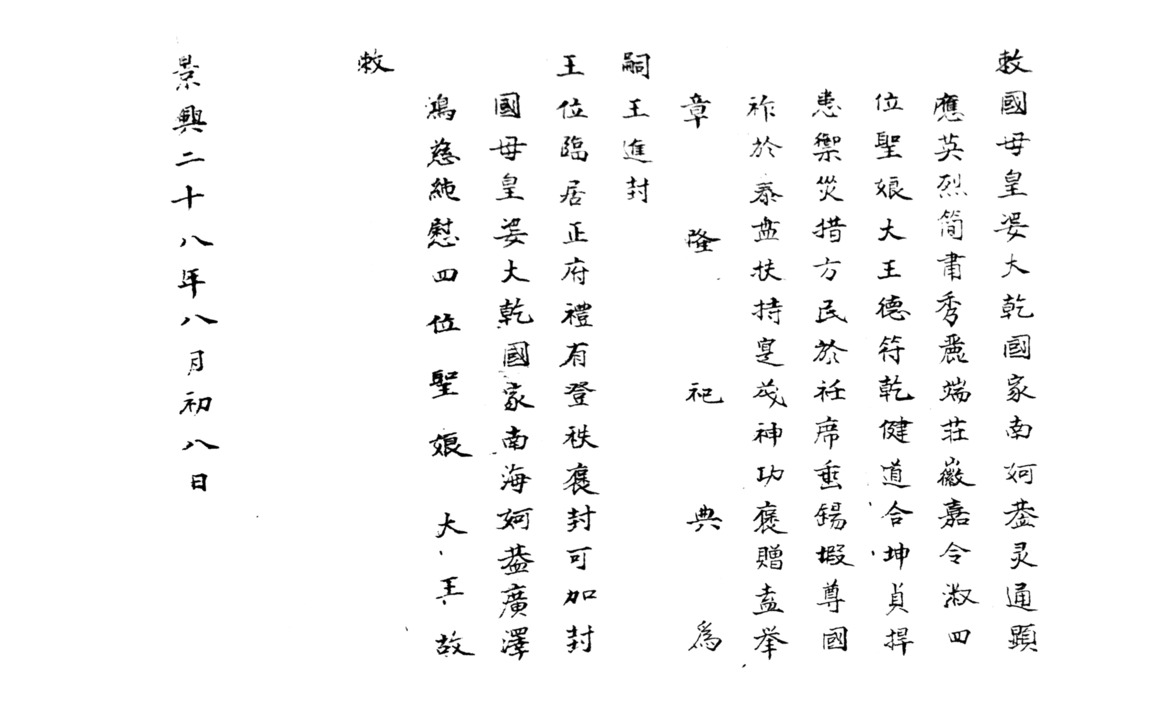 敕國母皇婆大乾國家南妸葢灵通顕
應英烈简肅秀麗端莊徽嘉令淑四
位聖娘大王德符乾健道合坤貞捍
患禦災措方民於衽席垂錫嘏尊國
祚於泰盘扶持寔茂神功褒贈盍举
章隆祀典爲
嗣王進封
王位臨居正府禮有登秩褒封可加封
國母皇婆大乾國家南海妸葢廣澤
鴻慈純慰四位聖娘大王故
敕
景興二十八年八月初八日